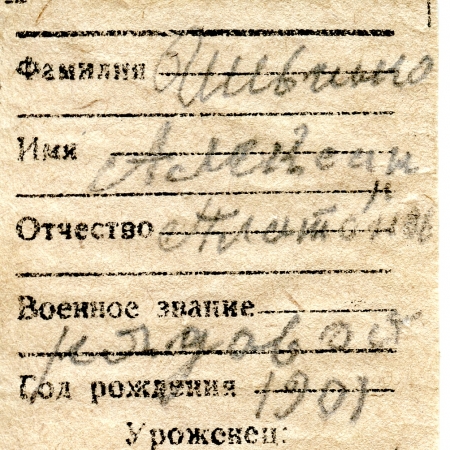 Фамилия
Имя Алексей
Отчество
Военное звание
рядовой
Год рождения 1901
Уроженец: